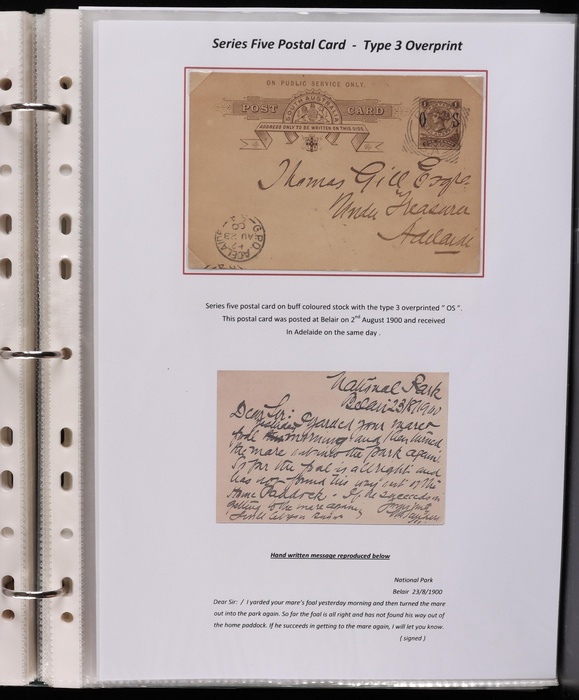 Series Five Postal Card - Type 3 Overprint
ON PUBLIC SERVICE ONLY.
SOUTH AUSTRALIA
POST CARD
ADDRESS ONLY TO BE WRITTEN ON THIS SIDE.
O S
Thomas Gill Esqre
Under Treasurer
Adelaide
G.P.O. ADELAIDE
AU 23
00
Series five postal card on buff coloured stock with the type 3 overprinted " OS ".
This postal card was posted at Belair on 2nd August 1900 and received
In Adelaide on the same day .
National Park
Belair 23/8/1900
Dear Sir: I yarded your mare's
foal yesterday morning and then turned
the mare out into the park again.
So far the foal is all right and
has not found his way out of the
home Paddock. If he succeeds in
getting to the mare again
I will let you know
Hand written message reproduced below
National Park
Belair 23/8/1900
Dear Sir: / I yarded your mare's foal yesterday morning and then turned the mare
out into the park again. So far the foal is all right and has not found his way out of
the home paddock. If he succeeds in getting to the mare again, I will let you know.
( signed )